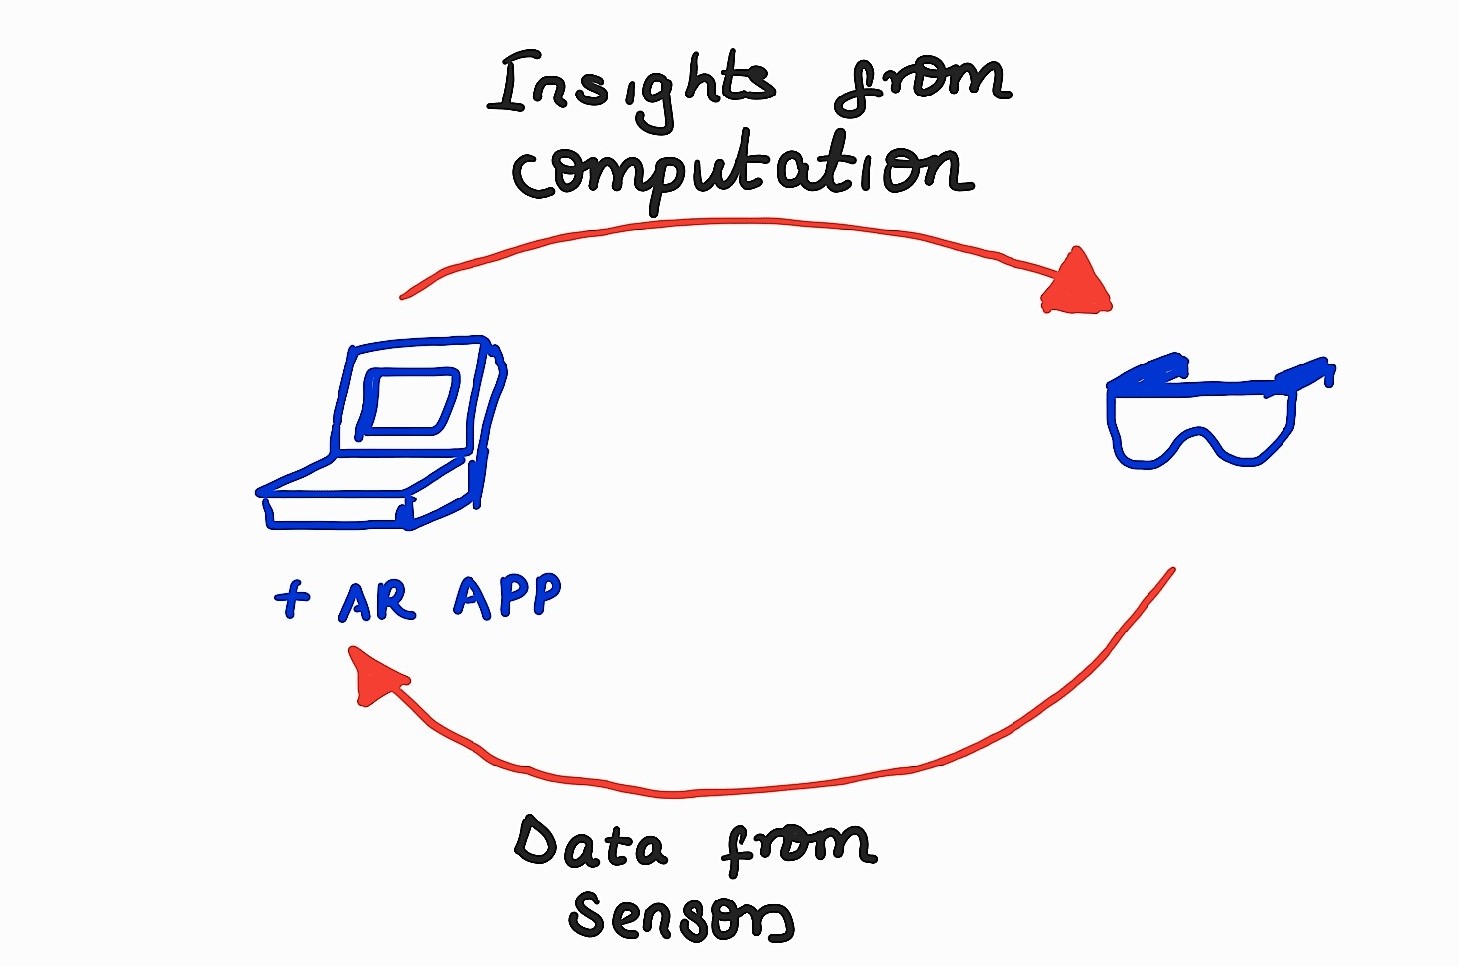 Insights from
computation
+ AR APP
Data from
Sensors